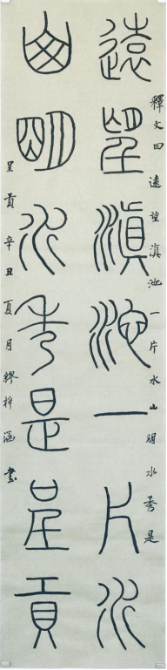 遠望滇池一片水
山明水秀是呈貢
釋文曰遠望滇池一片水山明水秀是
呈貢辛丑夏月繆梓涵書